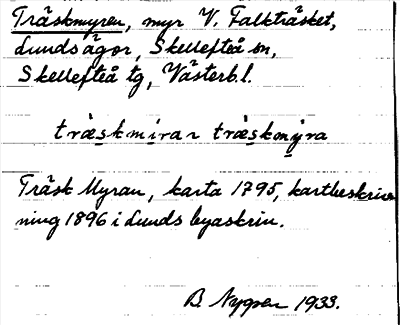 Träskmyren, myr V. Falkträsket,
Lunds ägor, Skellefteå sn,
Skellefteå tg, Västerb.l.
træskmirar træskmýra
Träsk Myran, karta 1795, kartbeskriv-
ning 1896 i Lunds byaskrin.
B. Nygren 1933.